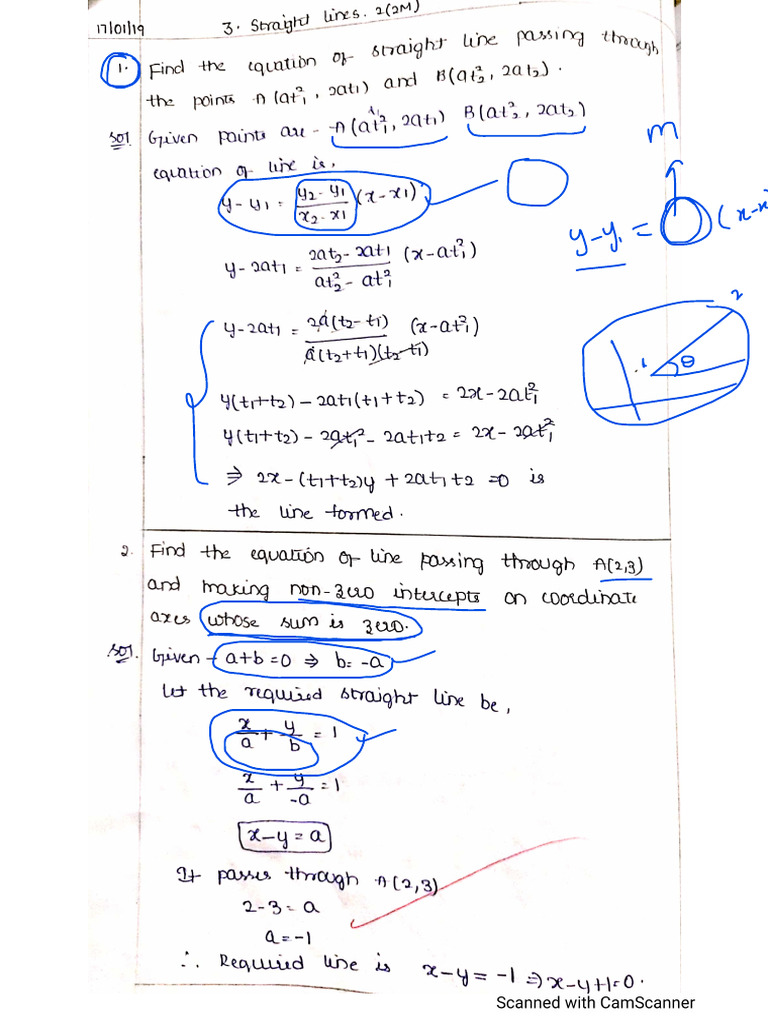 17/01/19
3. Straight lines. 2(2M)
1. Find the equation of straight line passing through
the points A(at₁², 2at₁) and B(at₂², 2at₂).
Sol Given points are - A(at₁², 2at₁) B(at₂², 2at₂)
equation of line is,
y-y₁ = (y₂-y₁)/(x₂-x₁) (x-x₁)
m
y-y₁ = (x-x
y-2at₁ = (2at₂-2at₁)/(at₂²-at₁²) (x-at₁²)
y-2at₁ = 2a(t₂-t₁)/a(t₂+t₁)(t₂-t₁) (x-at₁²)
1 θ 2
y(t₁+t₂) - 2at₁(t₁+t₂) = 2x-2at₁²
y(t₁+t₂) - 2at₁² - 2at₁t₂ = 2x-2at₁²
⇒ 2x-(t₁+t₂)y + 2at₁t₂ =0 is
the line formed.
2. Find the equation of line passing through A(2,3)
and making non-zero intercepts on coordinate
axes whose sum is zero.
Sol. Given - a+b=0 ⇒ b=-a
Let the required straight line be,
x/a + y/b = 1
x/a + y/-a = 1
x-y=a
It passes through A(2,3)
2-3=a
a=-1
∴ Required line is x-y=-1 ⇒ x-y+1=0.
Scanned with CamScanner